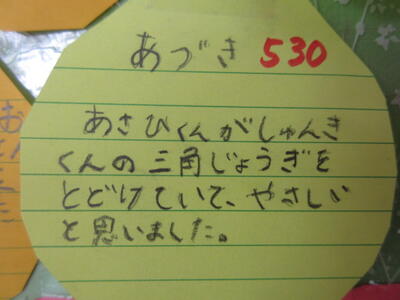 あづき 530
あさひくんがしゅんき
くんの三角じょうぎを
とどけていて、やさしい
と思いました。